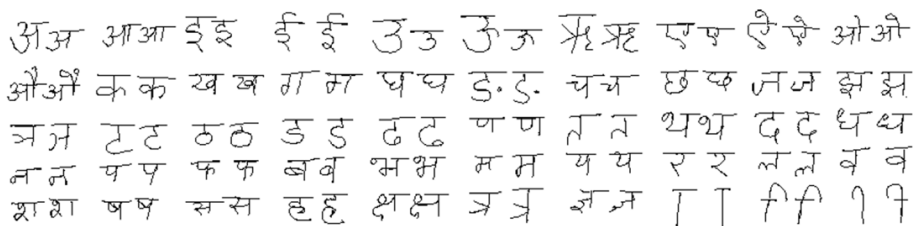 अ अ आ आ इ इ ई ई उ उ ऊ ऊ ऋ ऋ ए ए ऐ ऐ ओ ओ
औ औ क क ख ख ग ग घ घ ङ ङ च च छ छ ज ज झ झ
ञ ञ ट ट ठ ठ ड ड ढ ढ ण ण त त थ थ द द ध ध
न न प प फ फ ब ब भ भ म म य य र र ल ल व व
श श ष ष स स ह ह क्ष क्ष त्र त्र ज्ञ ज्ञ ा ा ि ि ी ी